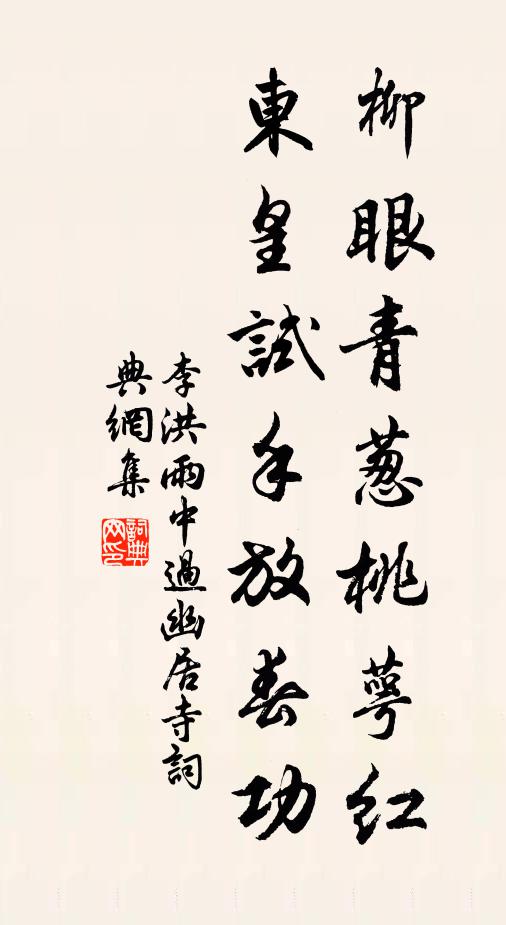 柳眼青葱桃萼紅
東皇試手放春功
李洪雨中過幽居寺詞
典網集
詞典網印